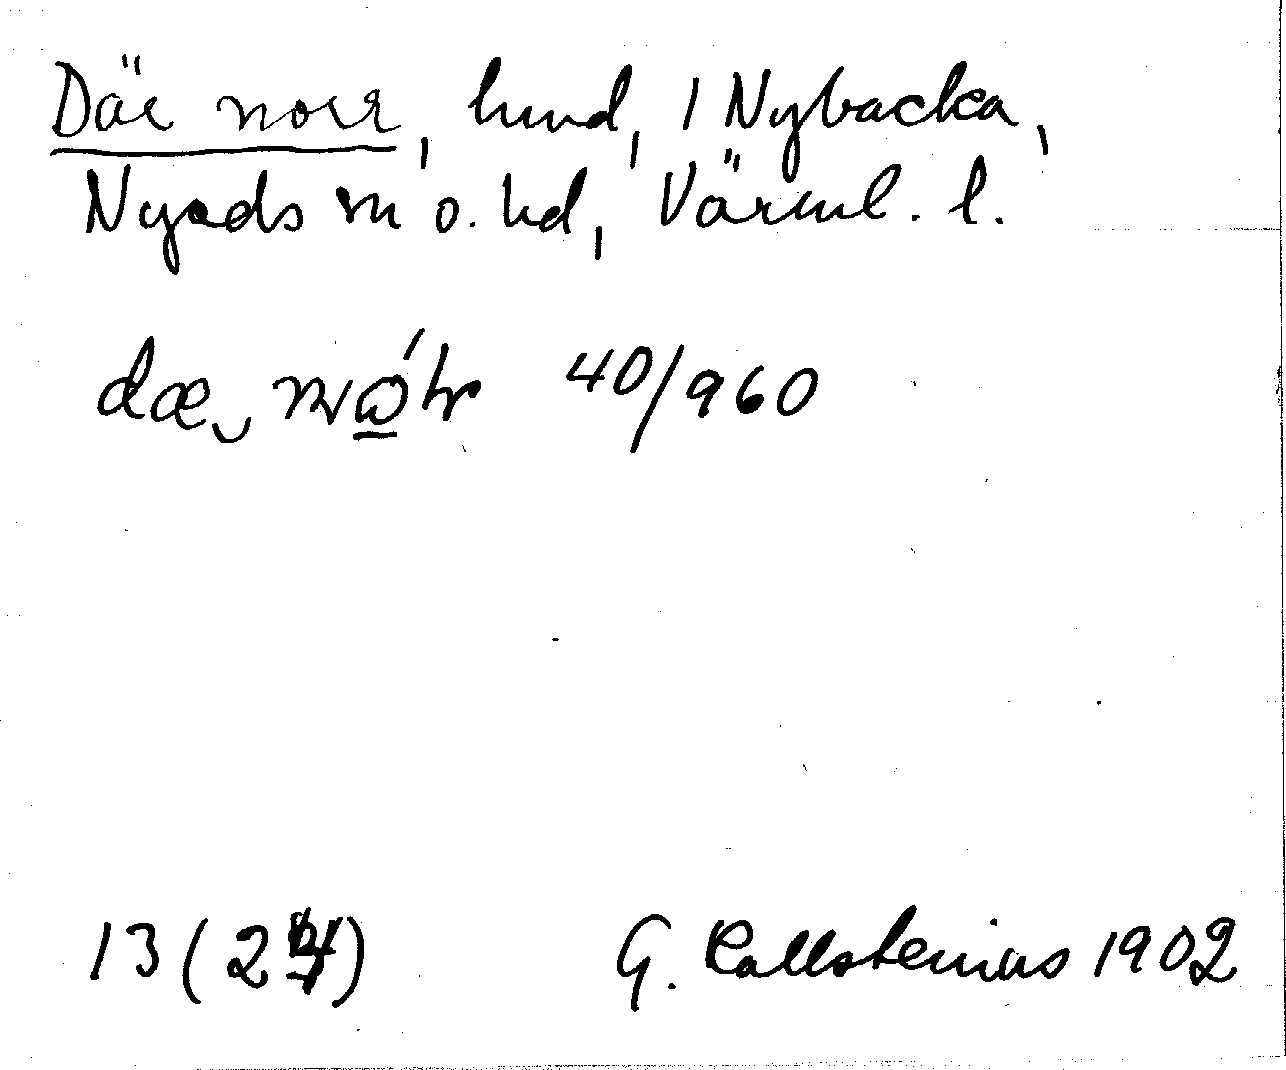 Där norr, hmd, i Nybacka,
Nyeds sn o. hd, Värml. l.
40/960
13 (24) G. Kallstenius 1902